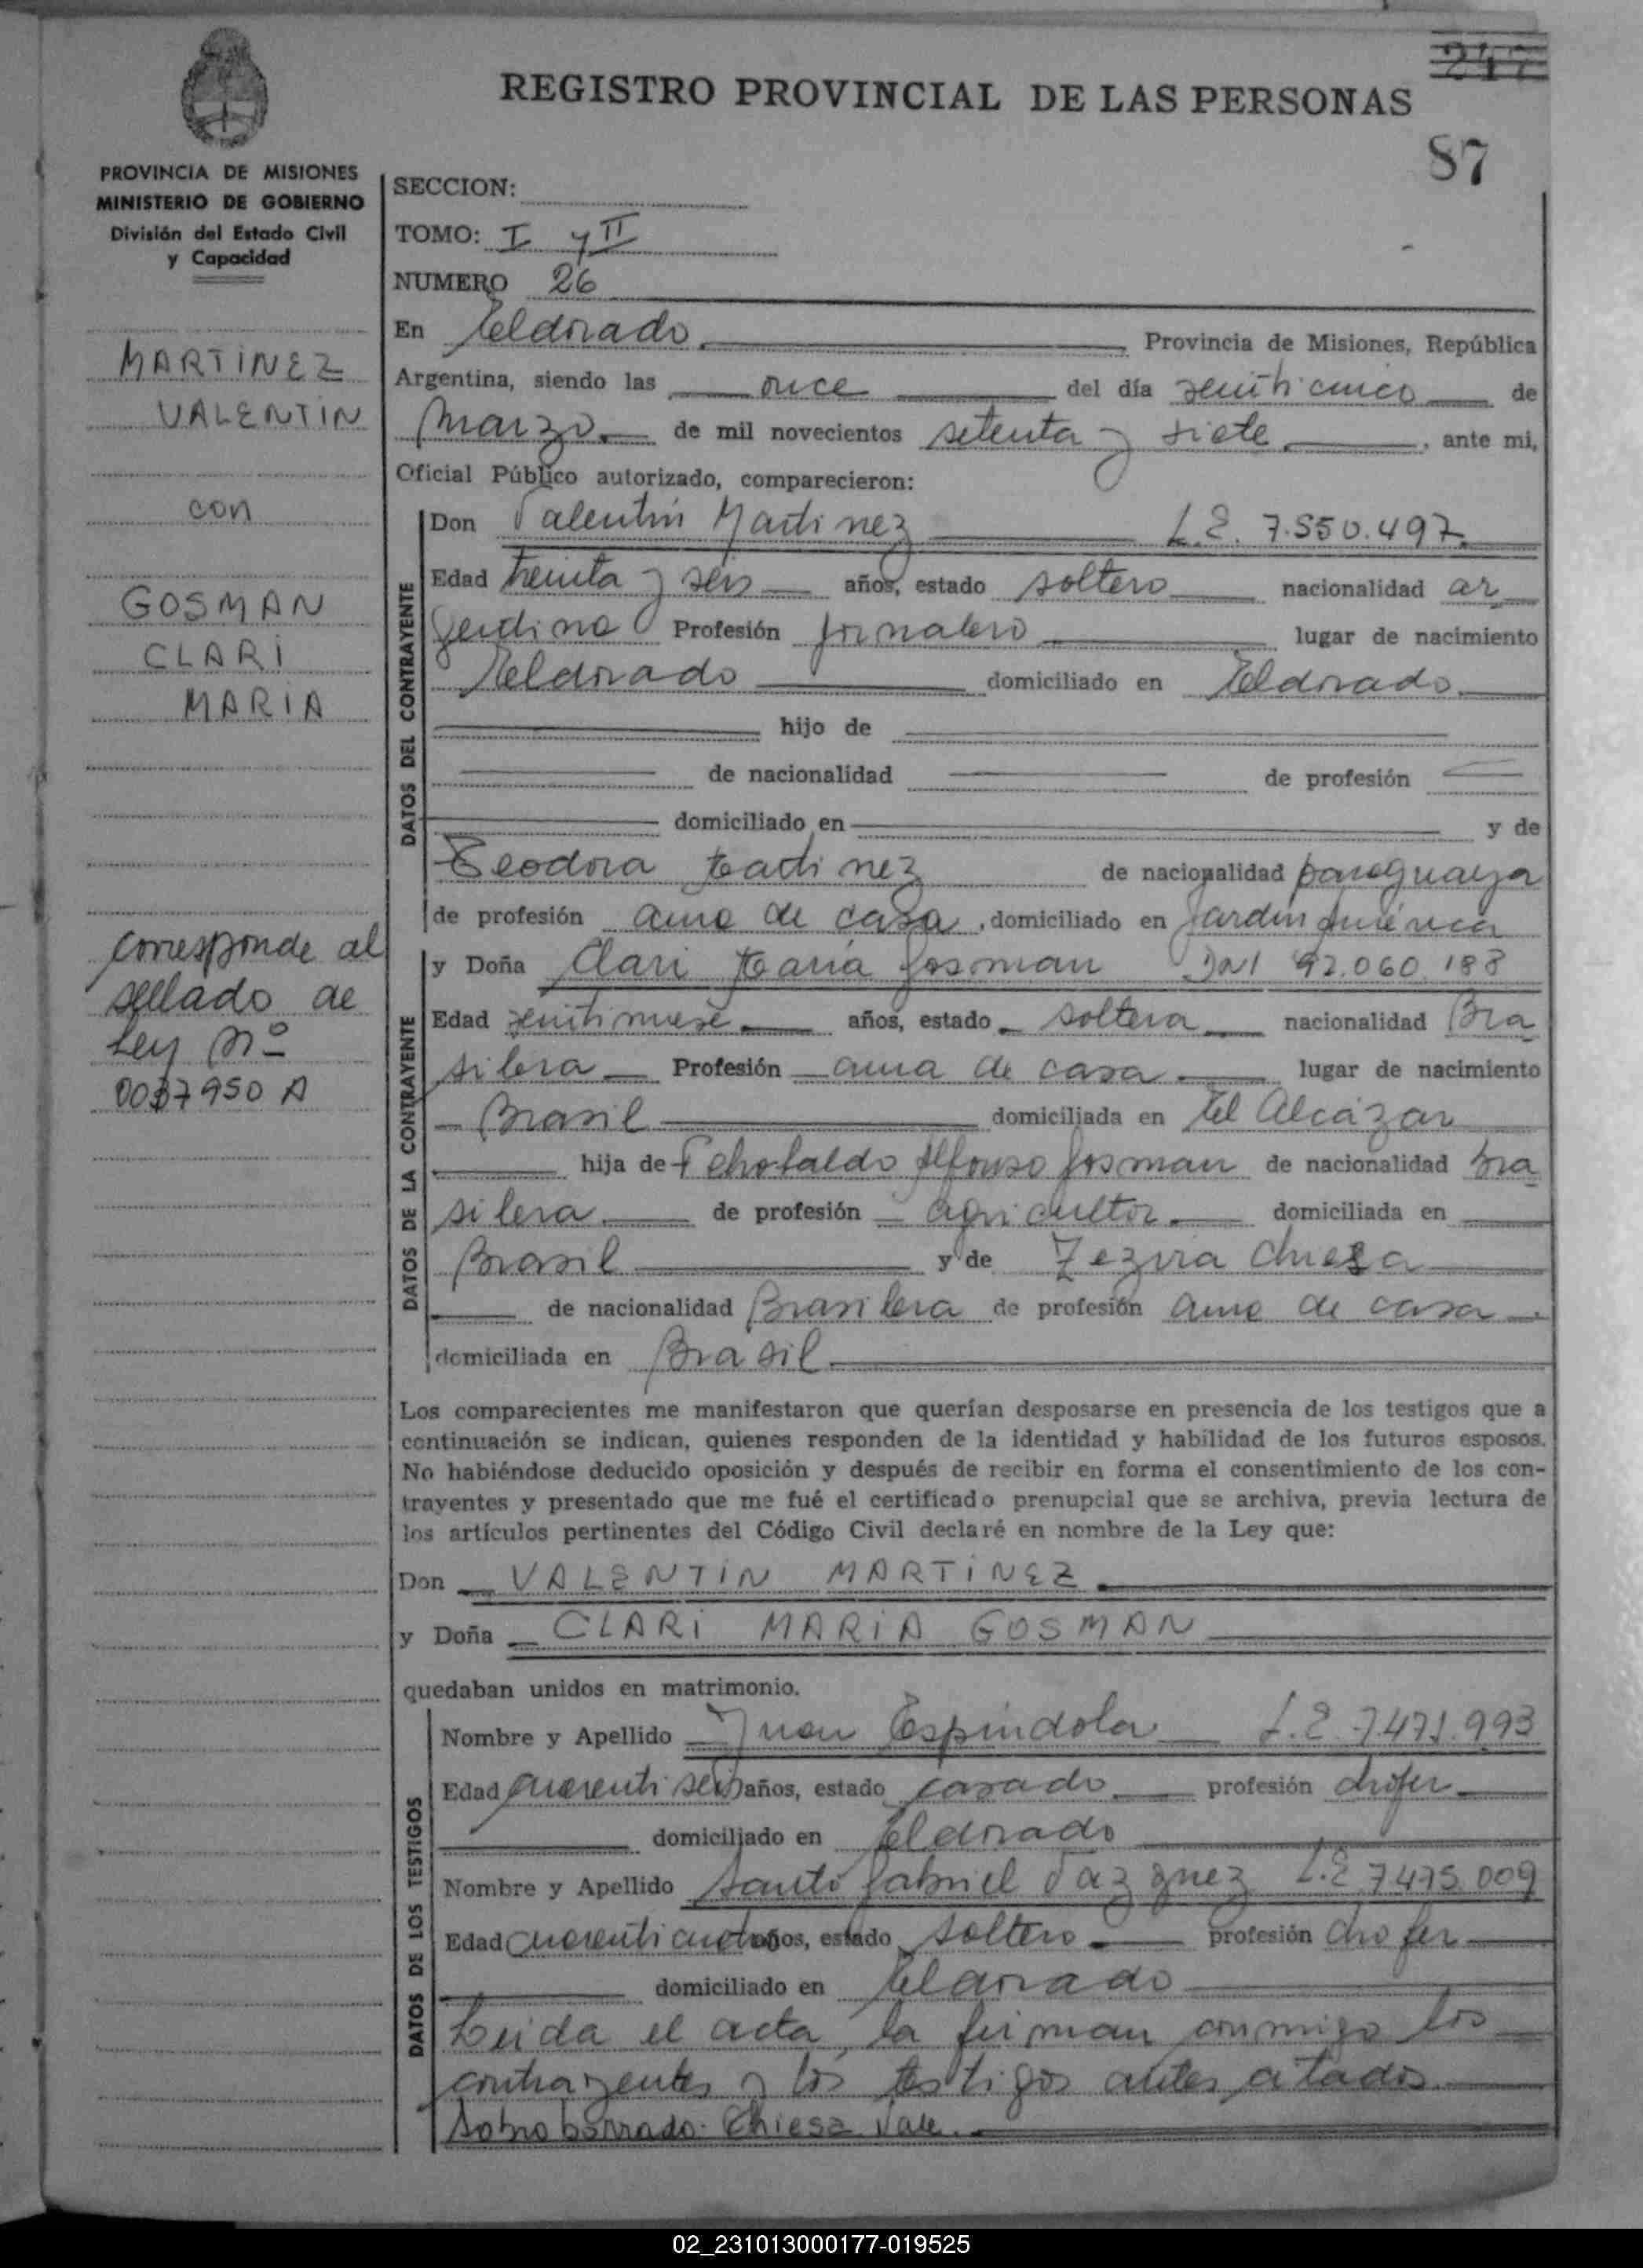 247
REGISTRO PROVINCIAL DE LAS PERSONAS
87
PROVINCIA DE MISIONES
MINISTERIO DE GOBIERNO
División del Estado Civil
y Capacidad
MARTINEZ
VALENTIN
con
GOSMAN
CLARI
MARIA
corresponde al
sellado de
Ley Nº
0037950 A
SECCION:
TOMO: I y II
NUMERO 26
En Eldorado Provincia de Misiones, República
Argentina, siendo las once del día veinticinco de
Marzo de mil novecientos setenta y siete, ante mi,
Oficial Público autorizado, comparecieron:
DATOS DEL CONTRAYENTE
Don Valentín Martinez L.E. 7.550.497
Edad treinta y seis años, estado soltero nacionalidad ar
gentina Profesión jornalero lugar de nacimiento
Eldorado domiciliado en Eldorado
hijo de
de nacionalidad de profesión
domiciliado en y de
Teodora Martinez de nacionalidad paraguaya
de profesión ama de casa, domiciliado en Jardín América
DATOS DE LA CONTRAYENTE
y Doña Clari María Gosman DNI 92.060.188
Edad veintinueve años, estado soltera nacionalidad Bra
silera Profesión ama de casa lugar de nacimiento
Brasil domiciliada en El Alcázar
hija de Alfonso Gosman de nacionalidad bra
silera de profesión agricultor domiciliada en
Brasil y de Zezira Chiesa
de nacionalidad Brasilera de profesión ama de casa
domiciliada en Brasil
Los comparecientes me manifestaron que querían desposarse en presencia de los testigos que a
continuación se indican, quienes responden de la identidad y habilidad de los futuros esposos.
No habiéndose deducido oposición y después de recibir en forma el consentimiento de los con-
trayentes y presentado que me fué el certificado prenupcial que se archiva, previa lectura de
los artículos pertinentes del Código Civil declaré en nombre de la Ley que:
Don VALENTIN MARTINEZ
y Doña CLARI MARIA GOSMAN
quedaban unidos en matrimonio.
DATOS DE LOS TESTIGOS
Nombre y Apellido Juan Espíndola L.E. 7.471.993
Edad cuarenti seis años, estado casado profesión chofer
domiciliado en Eldorado
Nombre y Apellido Santo Gabriel Vazquez L.E 7.475.009
Edad cuarenti cuatro años, estado soltero profesión chofer
domiciliado en Eldorado
Leida el acta, la firman conmigo los
contrayentes y los testigos antes citados.
Sobre borrado: Chiesa Vale.
02_231013000177-019525